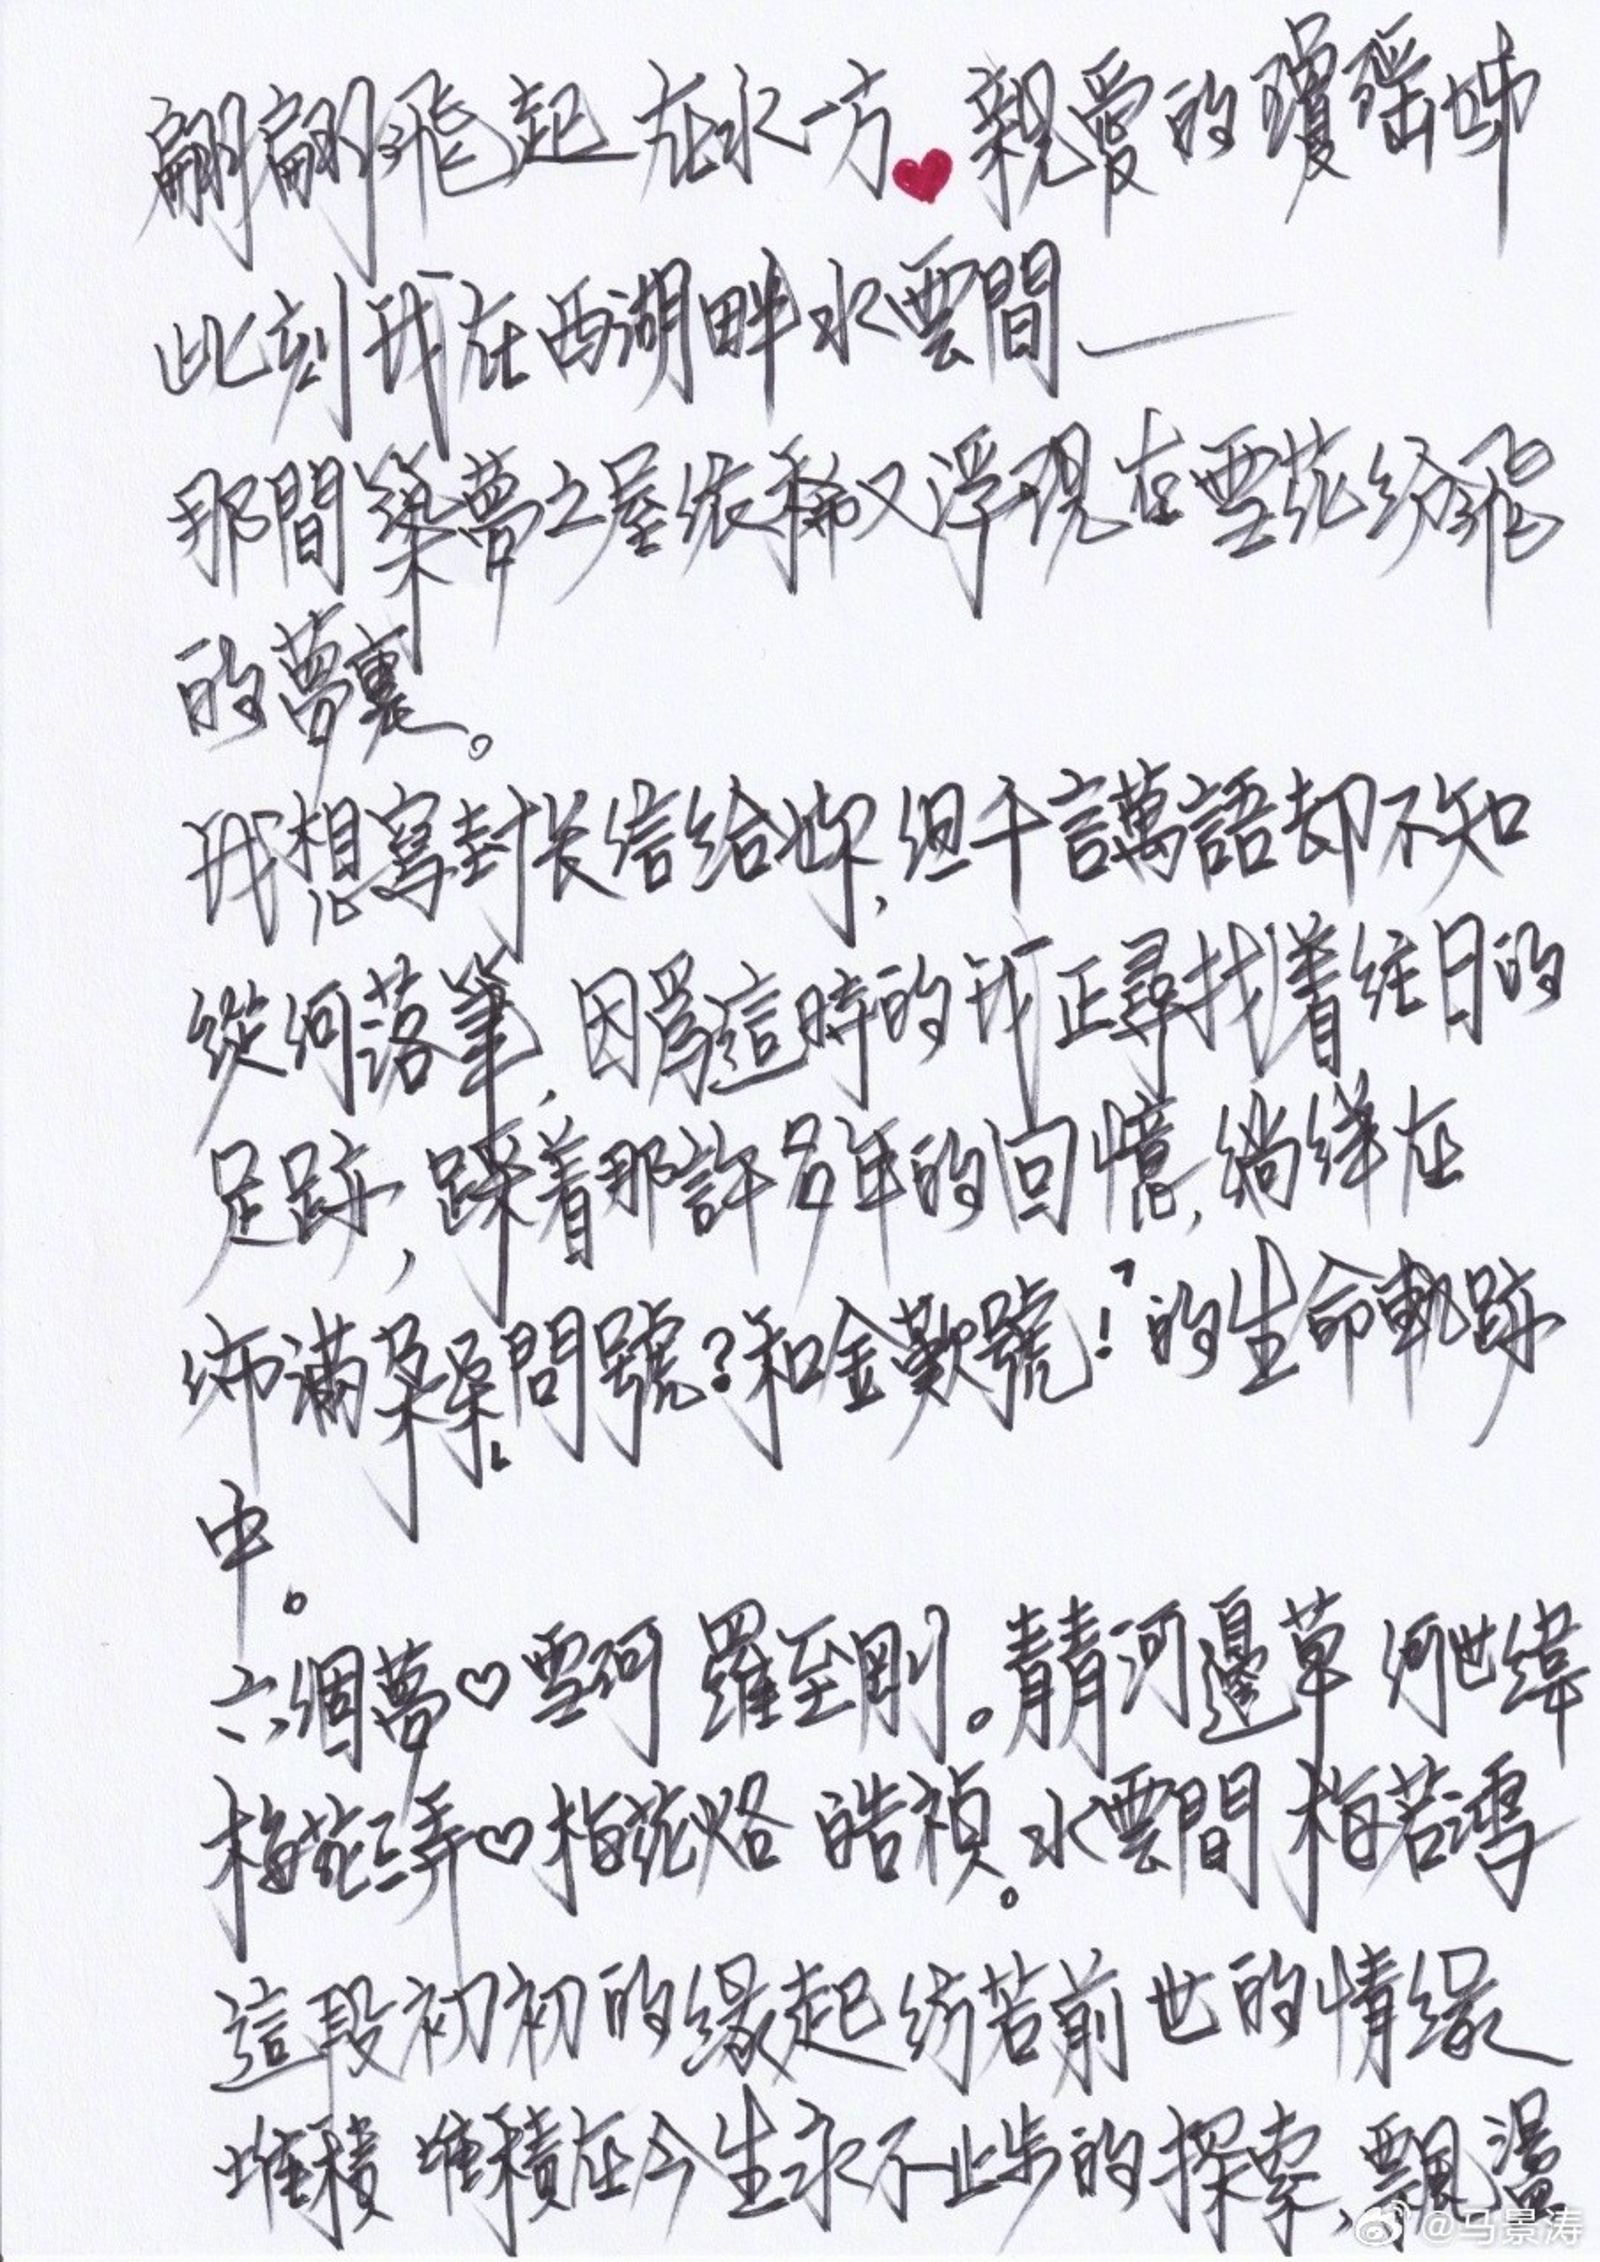 翩翩飛起在水一方❤親愛的瓊瑤姊
此刻我在西湖畔水雲間——
那間築夢之屋依稀又浮現在雪花紛飛
的夢裏。
我想寫封长信給妳,但千言萬語却不知
從何落筆,因爲這時的我正尋找着往日的
足跡,踩着那許多年的回憶,徜徉在
佈滿朵朵問號?和金歎號!的生命軌跡
中。
六個夢♡雪珂 羅至剛。青青河邊草 何世緯
梅花三弄♡梅花烙 皓禎。水雲間 梅若鴻
這段初初的緣起彷若前世的情缘
堆積 堆積在今生永不止步的探索,飄盪
@马景涛